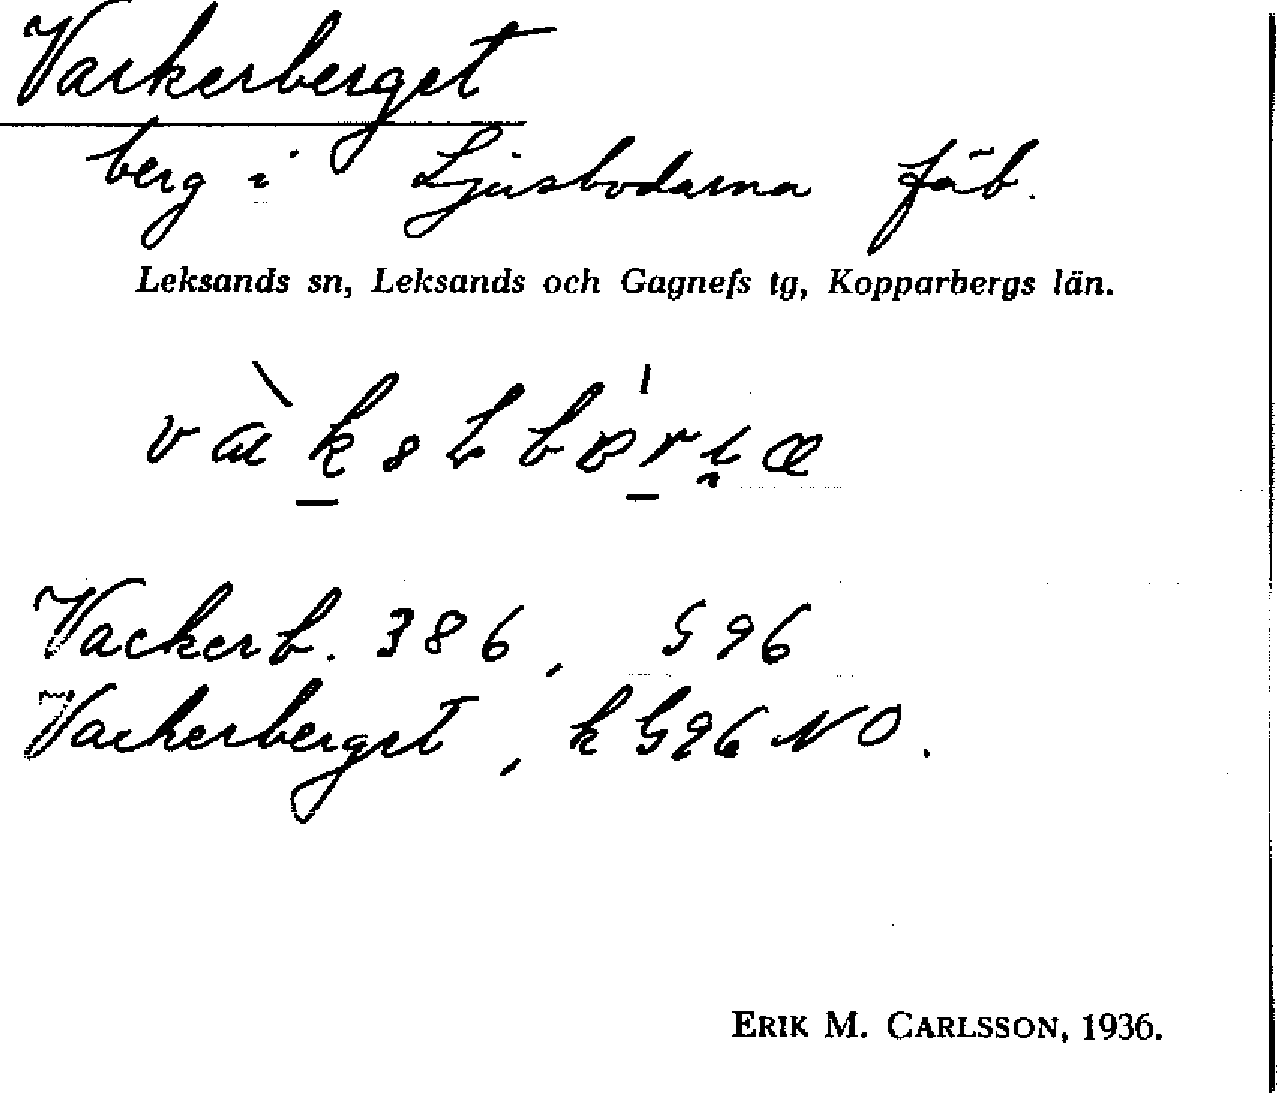 Vackerberget
berg i Ljusbodarna fäb.
Leksands sn, Leksands och Gagnefs tg, Kopparbergs län.
Vackerb. 386, 596
Vackerberget, k 596 NO.
ERIK M. CARLSSON, 1936.